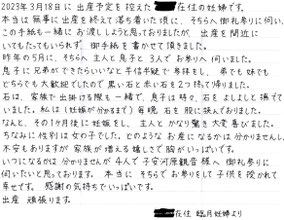 2023年3月18日に出産予定を控えた 在住の妊婦です。
本当は無事に出産を終えて落ち着いた頃に、そちらへ御礼参りに伺い、
この手紙も一緒にお渡ししようと思っておりましたが、出産を間近に
いてもたってもいられず、御手紙を書かせて頂きました。
昨年の5月に、そちらへ主人と息子と3人でお参りへ伺いました。
息子に兄弟ができたらいいなと半信半疑で参拝をし、弟でも妹でも
どちらでも大歓迎でしたので黒い石と赤い石を2つ持ち帰りました。
石は、家族で出掛ける際も一緒で、息子は時々、石をよしよしと撫でて
いました。私は(妊娠が分かるまで)毎晩、石を股に挟んでおりました。
なんと、その1ヶ月後に妊娠をし、主人とかなり驚き大変喜びました。
ちなみに性別は女の子でした。どのようなお産になるかは分かりませんし、
不安もありますが家族が増える嬉しさで胸がいっぱいです。
いつになるかは分かりませんが4人で子安河原観音様へ御礼参りに
伺いたいと思っております。本当にそちらでお参りをして子供を授かれて
幸せです。感謝の気持ちでいっぱいです。
出産頑張ります。
在住 臨月妊婦より